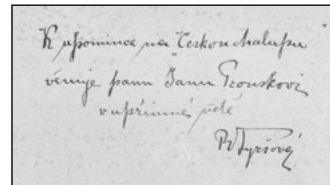 K upomínce na Českou chalupu
věnuje panu Janu Prouskovi
v upřímné úctě
R Tyršová